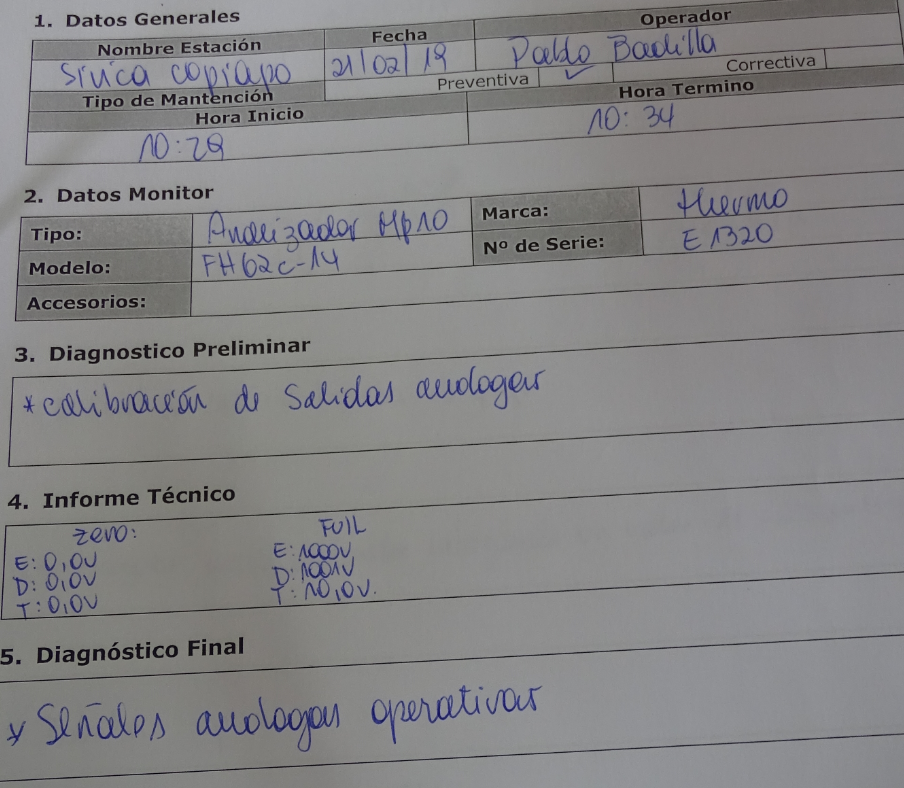 1. Datos Generales
Nombre Estación Fecha Operador
Sivica copiapo 21/02/19 Pablo Badilla
Tipo de Mantención Preventiva ✓ Correctiva
Hora Inicio Hora Termino
10:29 10:34
2. Datos Monitor
Tipo: Analizador Mp10 Marca: thermo
Modelo: FH62c-14 Nº de Serie: E1320
Accesorios:
3. Diagnostico Preliminar
* calibración de Salidas analogas
4. Informe Técnico
zero: FUll
E: 0,0V E: 1000V
D: 0,0V D: 1001V
T: 0,0V T: 10,0V.
5. Diagnóstico Final
* Señales analogas operativas